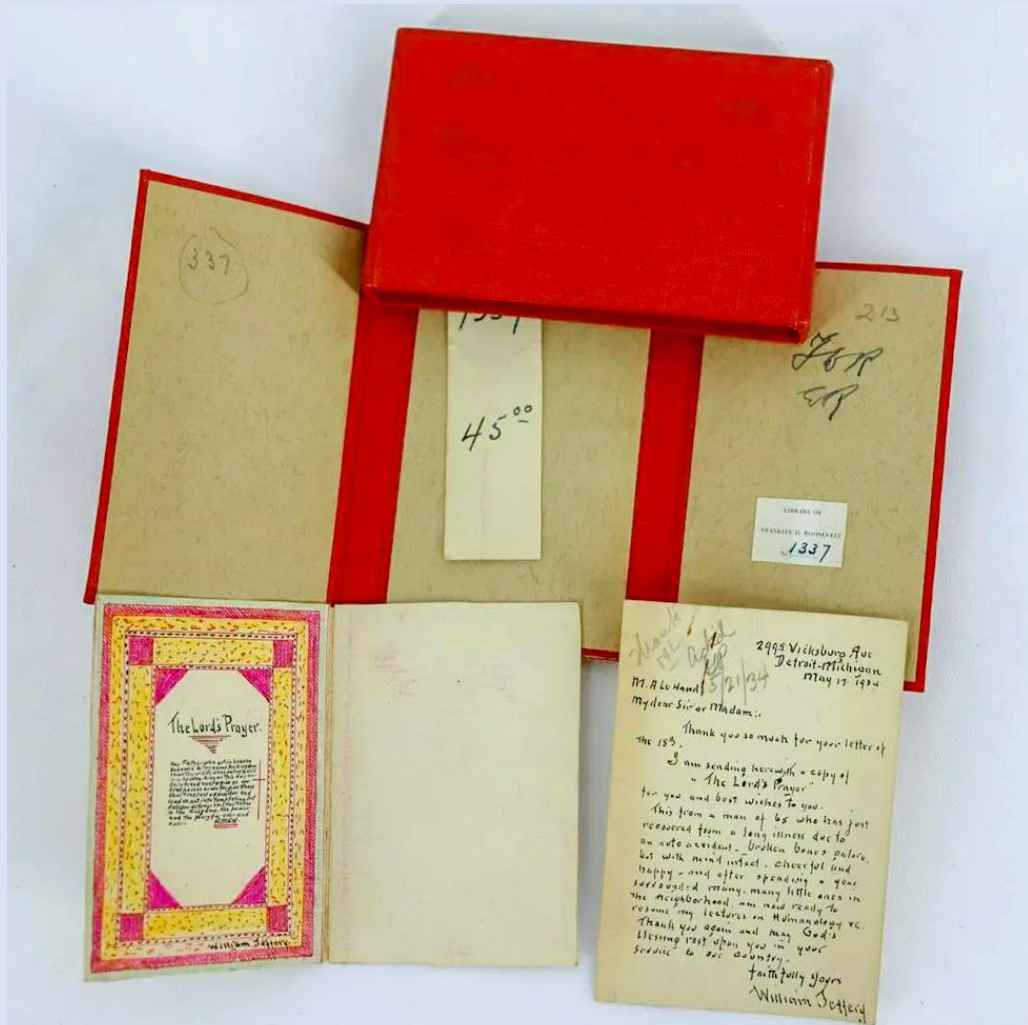 337
1337
45.00
213
FDR
ER
LIBRARY OF
FRANKLIN D. ROOSEVELT
No. 1337
The Lord's Prayer.
Our Father who art in heaven
is the Kingdom, the power
and the glory for ever and
ever. AMEN.
William Jeffery.
Thank
5/21/34
2995 Vicksburg Ave
Detroit-Michigan
May 17. 1934
M. A Le Hand
My dear Sir or Madam:-
Thank you so much for your letter of
the 15th.
I am sending herewith a copy of
"The Lord's Prayer"
for you and best wishes to you.
This from a man of 65 who has just
recovered from a long illness due to
an auto accident. broken bones galore.
but with mind intact. cheerful and
happy - and after spending a year
surrounded many. many little ones in
the neighborhood, am now ready to
resume my lectures on Humanology
Thank you again and may God's
blessing rest upon you in your
service to our Country.
faithfully yours
William Jeffery